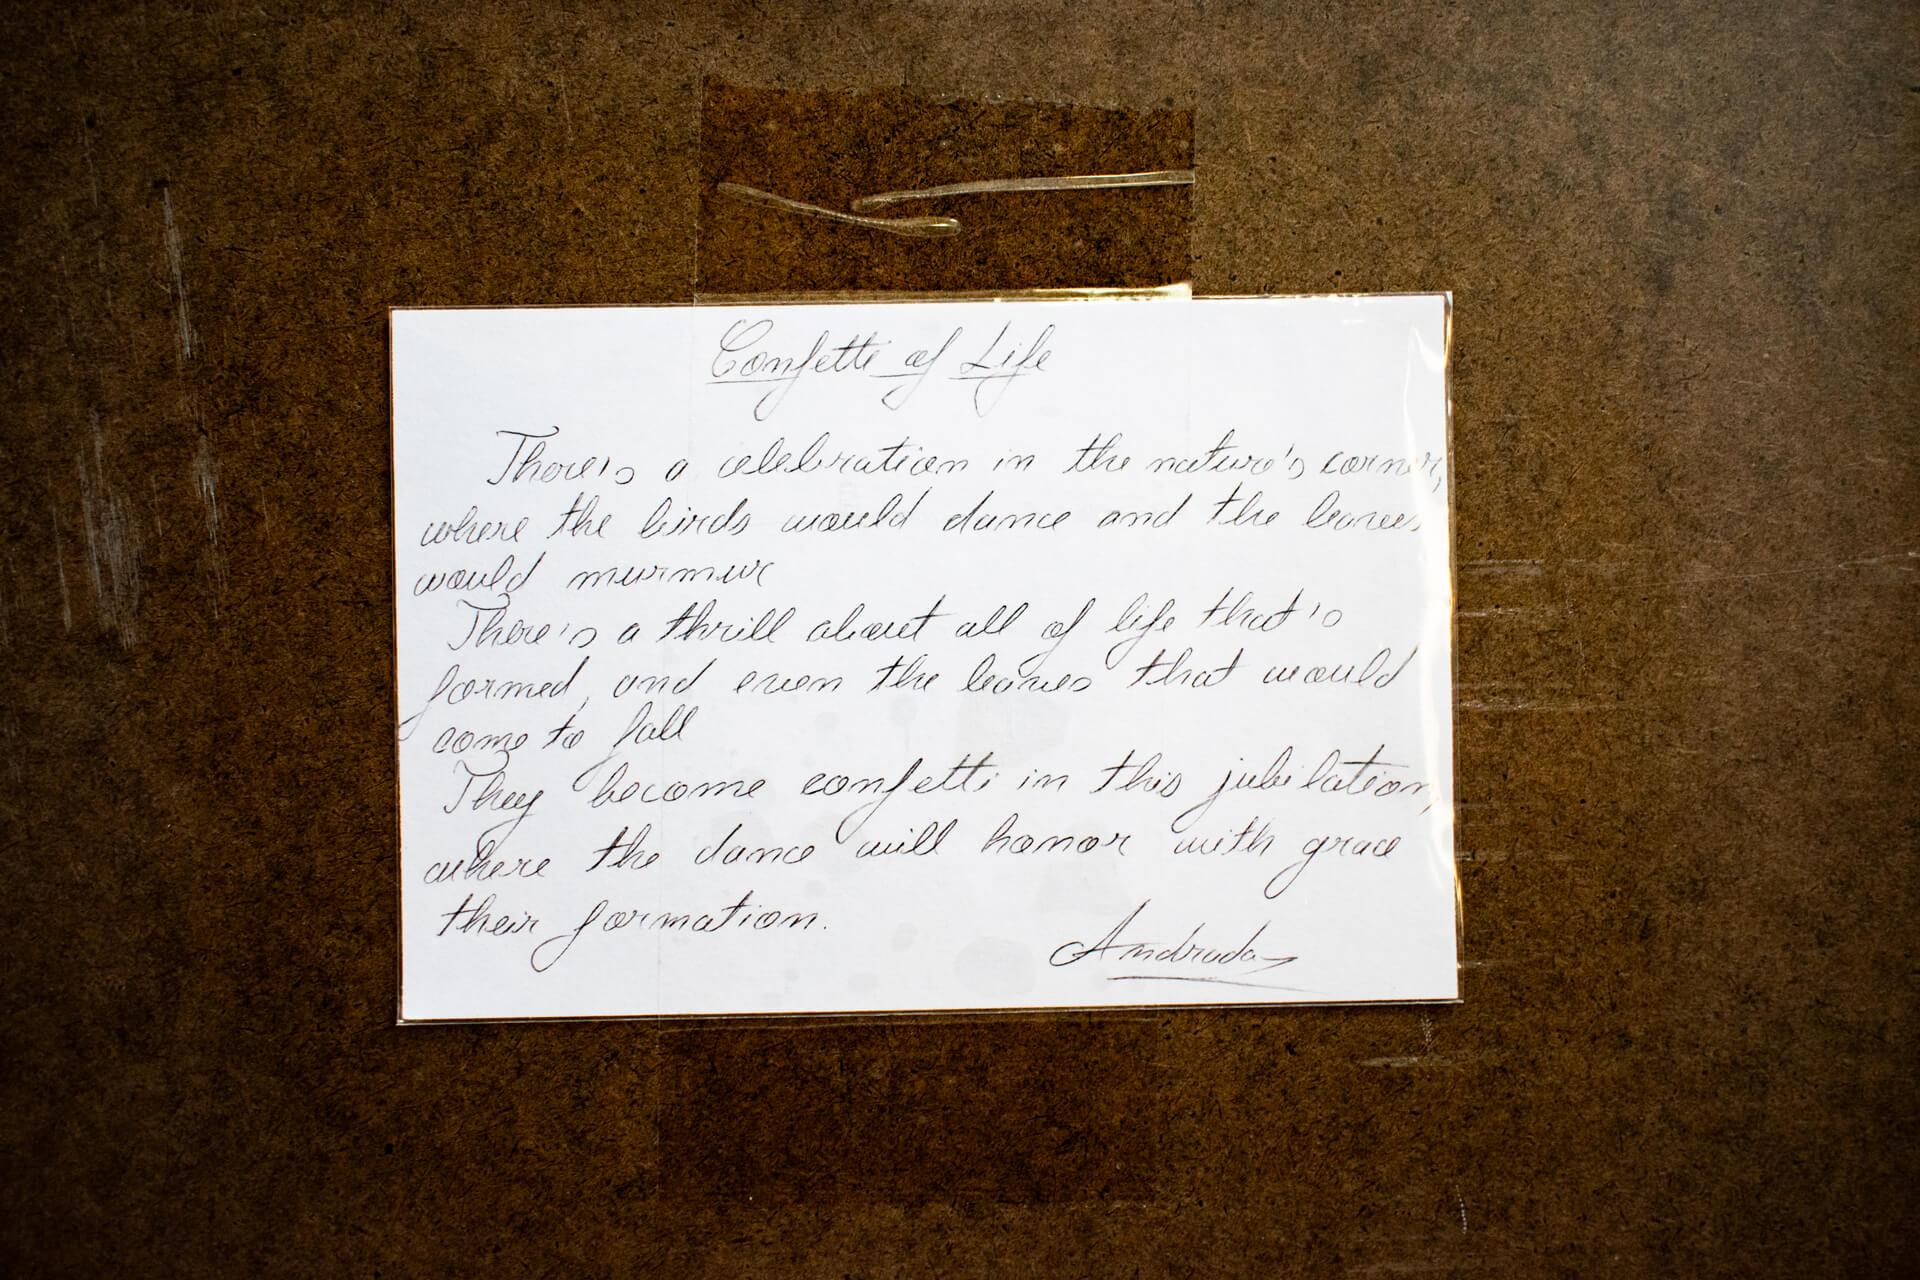 Confetti of Life
There's a celebration in the nature's corner,
where the birds would dance and the leaves
would murmur
There's a thrill about all of life that's
formed, and even the leaves that would
come to fall
They become confetti in this jubilation,
where the dance will honor with grace
their formation.
Andrada